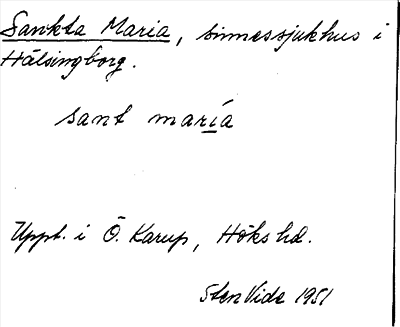 Sankta Maria, sinnessjukhus i
Hälsingborg.
sant maría
Uppt. i Ö. Karup, Höks hd.
Sten Vide 1951